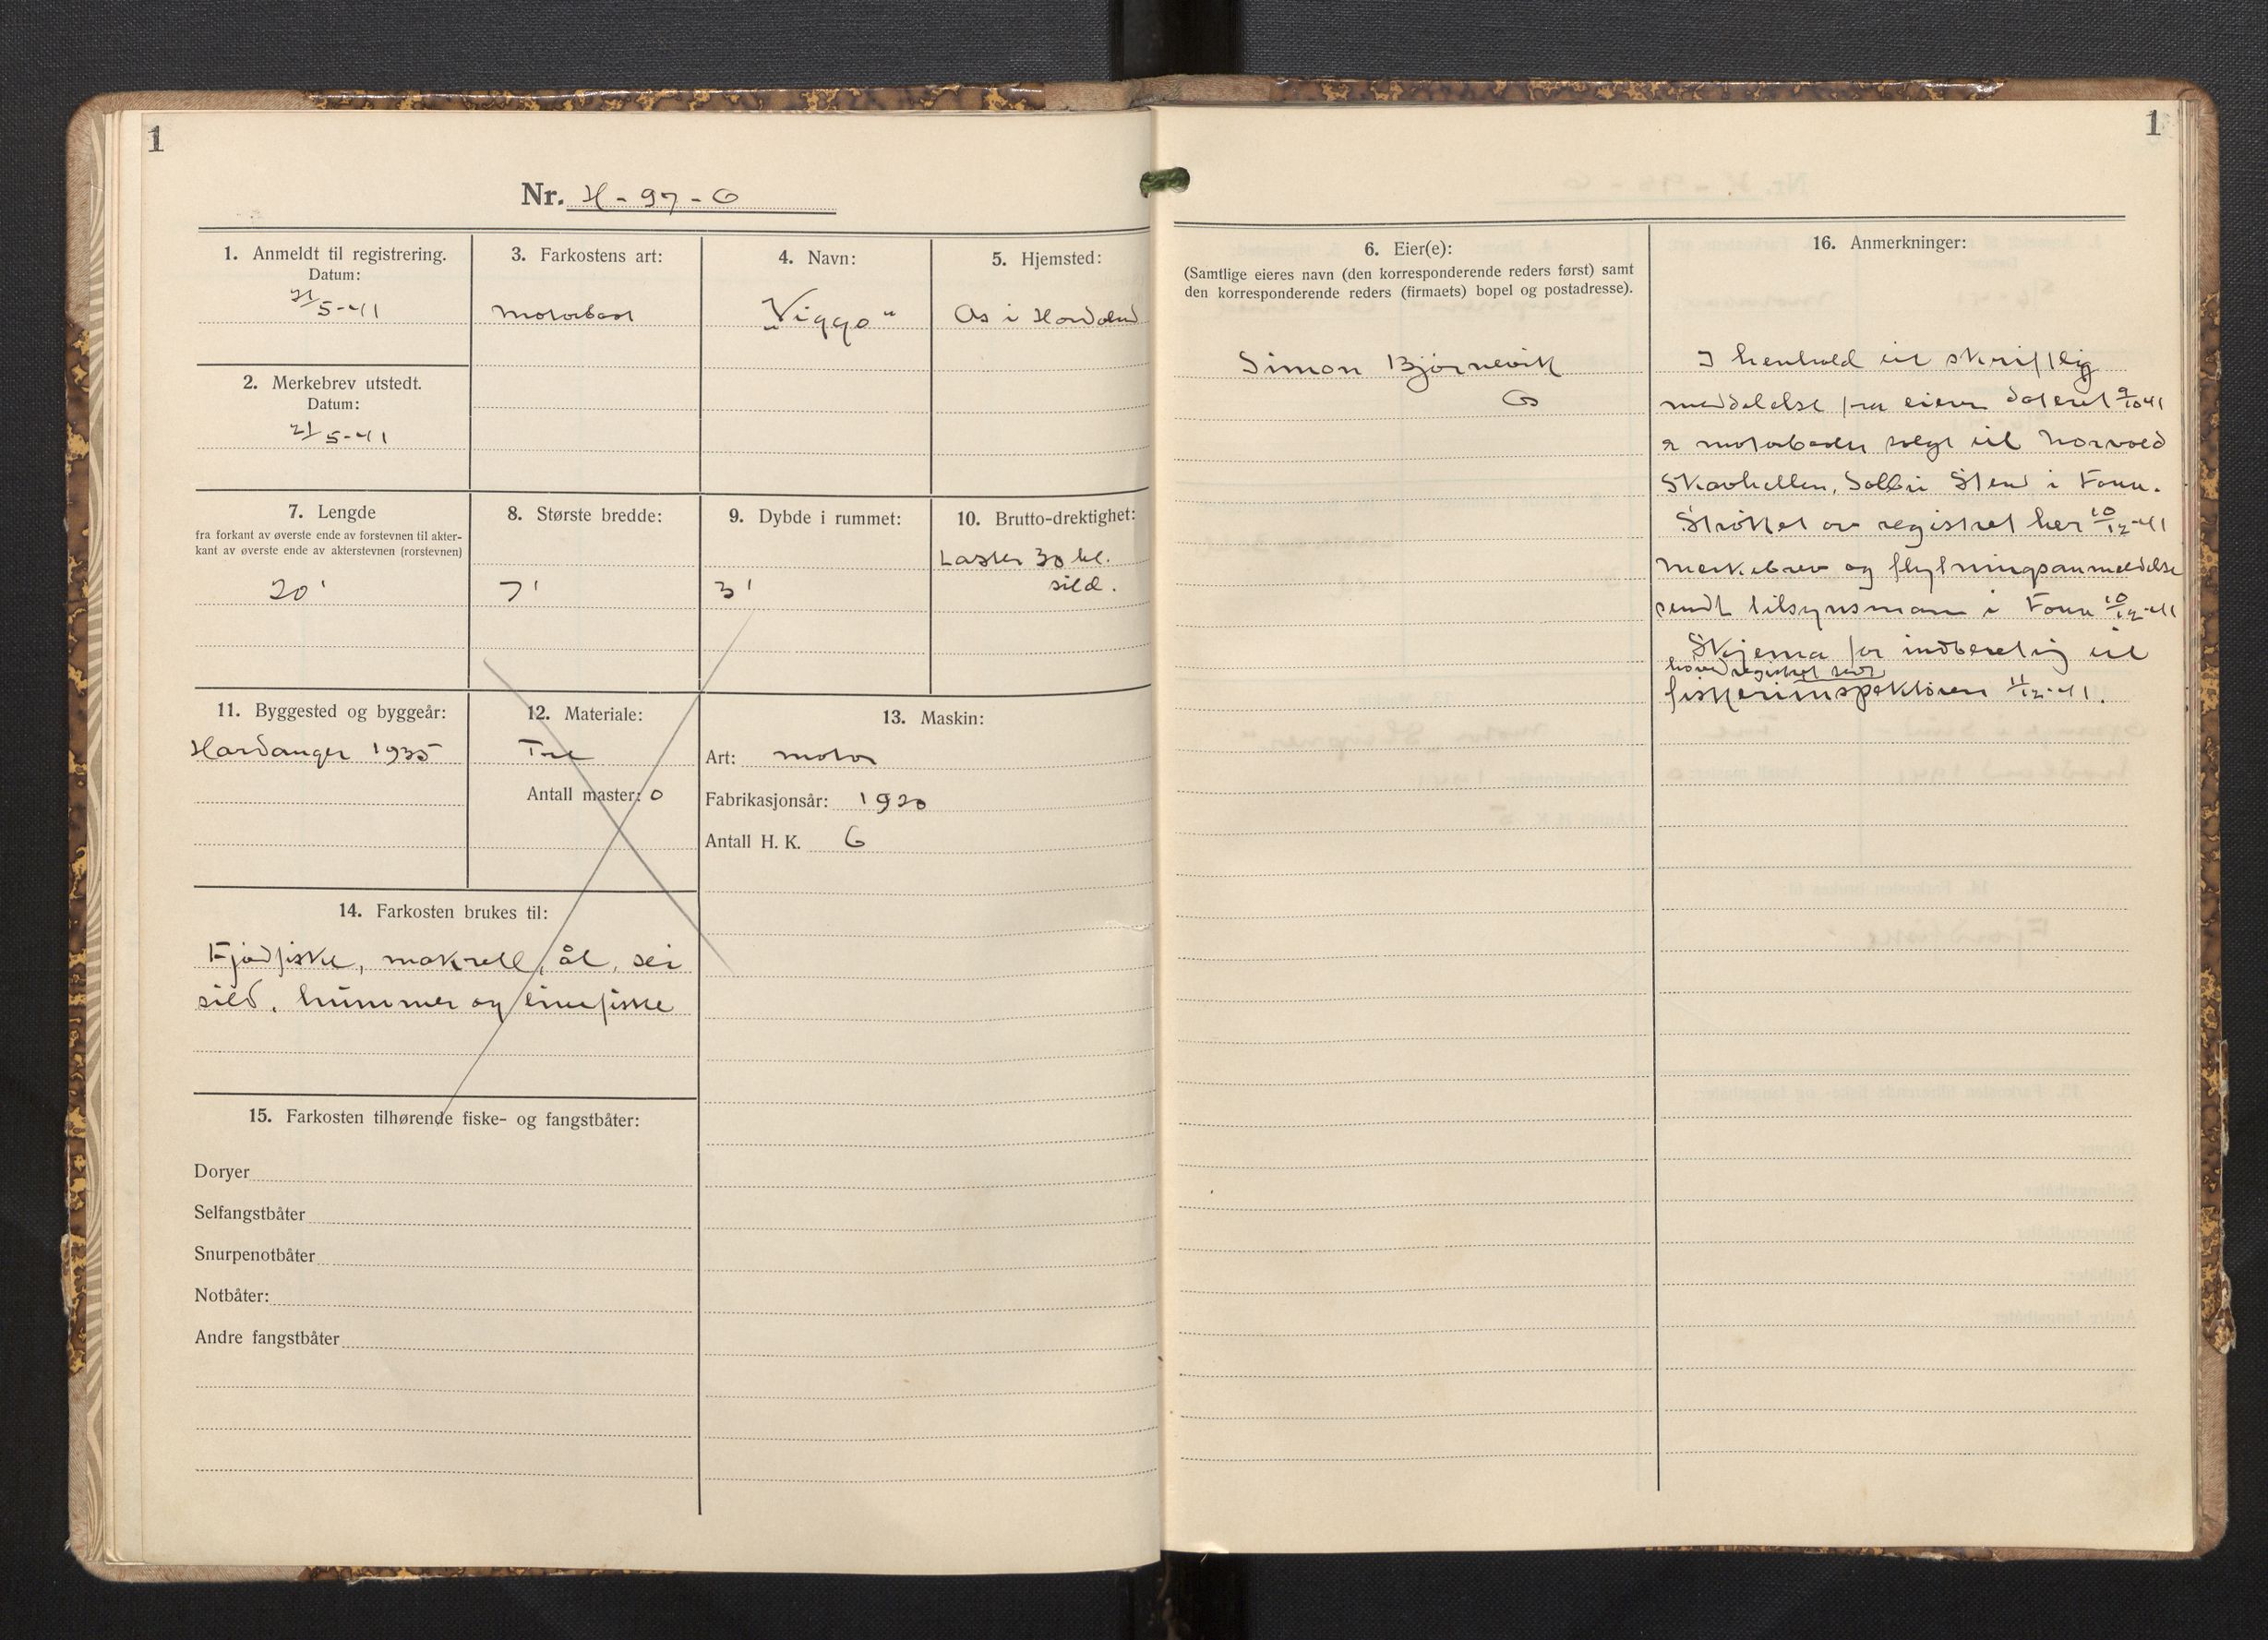 1
Nr. H - 97 - O
1. Anmeldt til registrering.
Datum:
21/5-41
2. Merkebrev utstedt.
Datum:
21/5-41
3. Farkostens art:
Motorbaat
4. Navn:
"Viggo"
5. Hjemsted:
Os i Hordaland
7. Lengde
fra forkant av øverste ende av forstevnen til akter-
kant av øverste ende av akterstevnen (rorstevnen)
20'
8. Største bredde:
7'
9. Dybde i rummet:
3'
10. Brutto-drektighet:
Laster 30 hl.
sild.
11. Byggested og byggeår:
Hardanger 1935
12. Materiale:
Tre
Antall master: 0
13. Maskin:
Art: motor
Fabrikasjonsår: 1920
Antall H. K. 6
14. Farkosten brukes til:
Fjordfiske, makrell, ål, sei
sild, hummer og linefiske
15. Farkosten tilhørende fiske- og fangstbåter:
Doryer
Selfangstbåter
Snurpenotbåter
Notbåter:
Andre fangstbåter
1
6. Eier(e):
(Samtlige eieres navn (den korresponderende reders først) samt
den korresponderende reders (firmaets) bopel og postadresse).
Simon Bjørnevik
Os
16. Anmerkninger:
I henhold til skriftlig
meddelelse fra eieren dateret 9/10 41
er motorbaaten solgt til Norvald
Skarhellen, Stend i Fana.
Strøket av registret her 10/12-41
Merkebrev og flytningsanmeldelse
sendt tilsynsmann i Fana 10/12-41
Skjema for indberetnig til
hovedregistret sendt
fiskeriinspektøren 11/12-41.